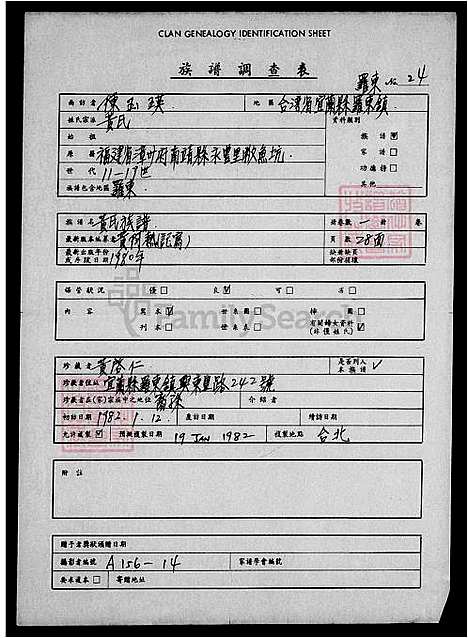 CLAN GENEALOGY IDENTIFICATION SHEET
族譜調查表
羅東 No 24
尚訪者 陳玉瑛 地區 台灣省宜蘭縣羅東鎮
姓氏宗派 黃氏 資料類別
始祖 族譜
原居 福建省漳州府南靖縣永豐里 家譜
世代 11-19世 功德榜
族譜包含地區 羅東 其他
族譜名 黃氏族譜 冊卷數 一 冊 卷
最新版本編纂者 頁數 28面
最新出版年份 1980年 缺冊缺頁
或片段日期 部份損壞
保管狀況 優 良 可 劣
內容 寫本 世系圖 排圖
刊本 世系表 有關婦女資料
(非僅姓氏)
FamilySearch
珍藏者 黃啓仁 是否列入
本族譜
珍藏者住址 宜蘭縣羅東鎮興東里路242號
珍藏者在(家)宗族中之地位 介紹者
初訪日期 1982.1.12. 複訪日期 續訪日期
允許複製 預擬複製日期 19 JAN 1982 複製地點 台北
附註
贈予者獎狀頒贈日期
攝影者編號 A156-14 家譜學會編號
要求複本 寄贈地址